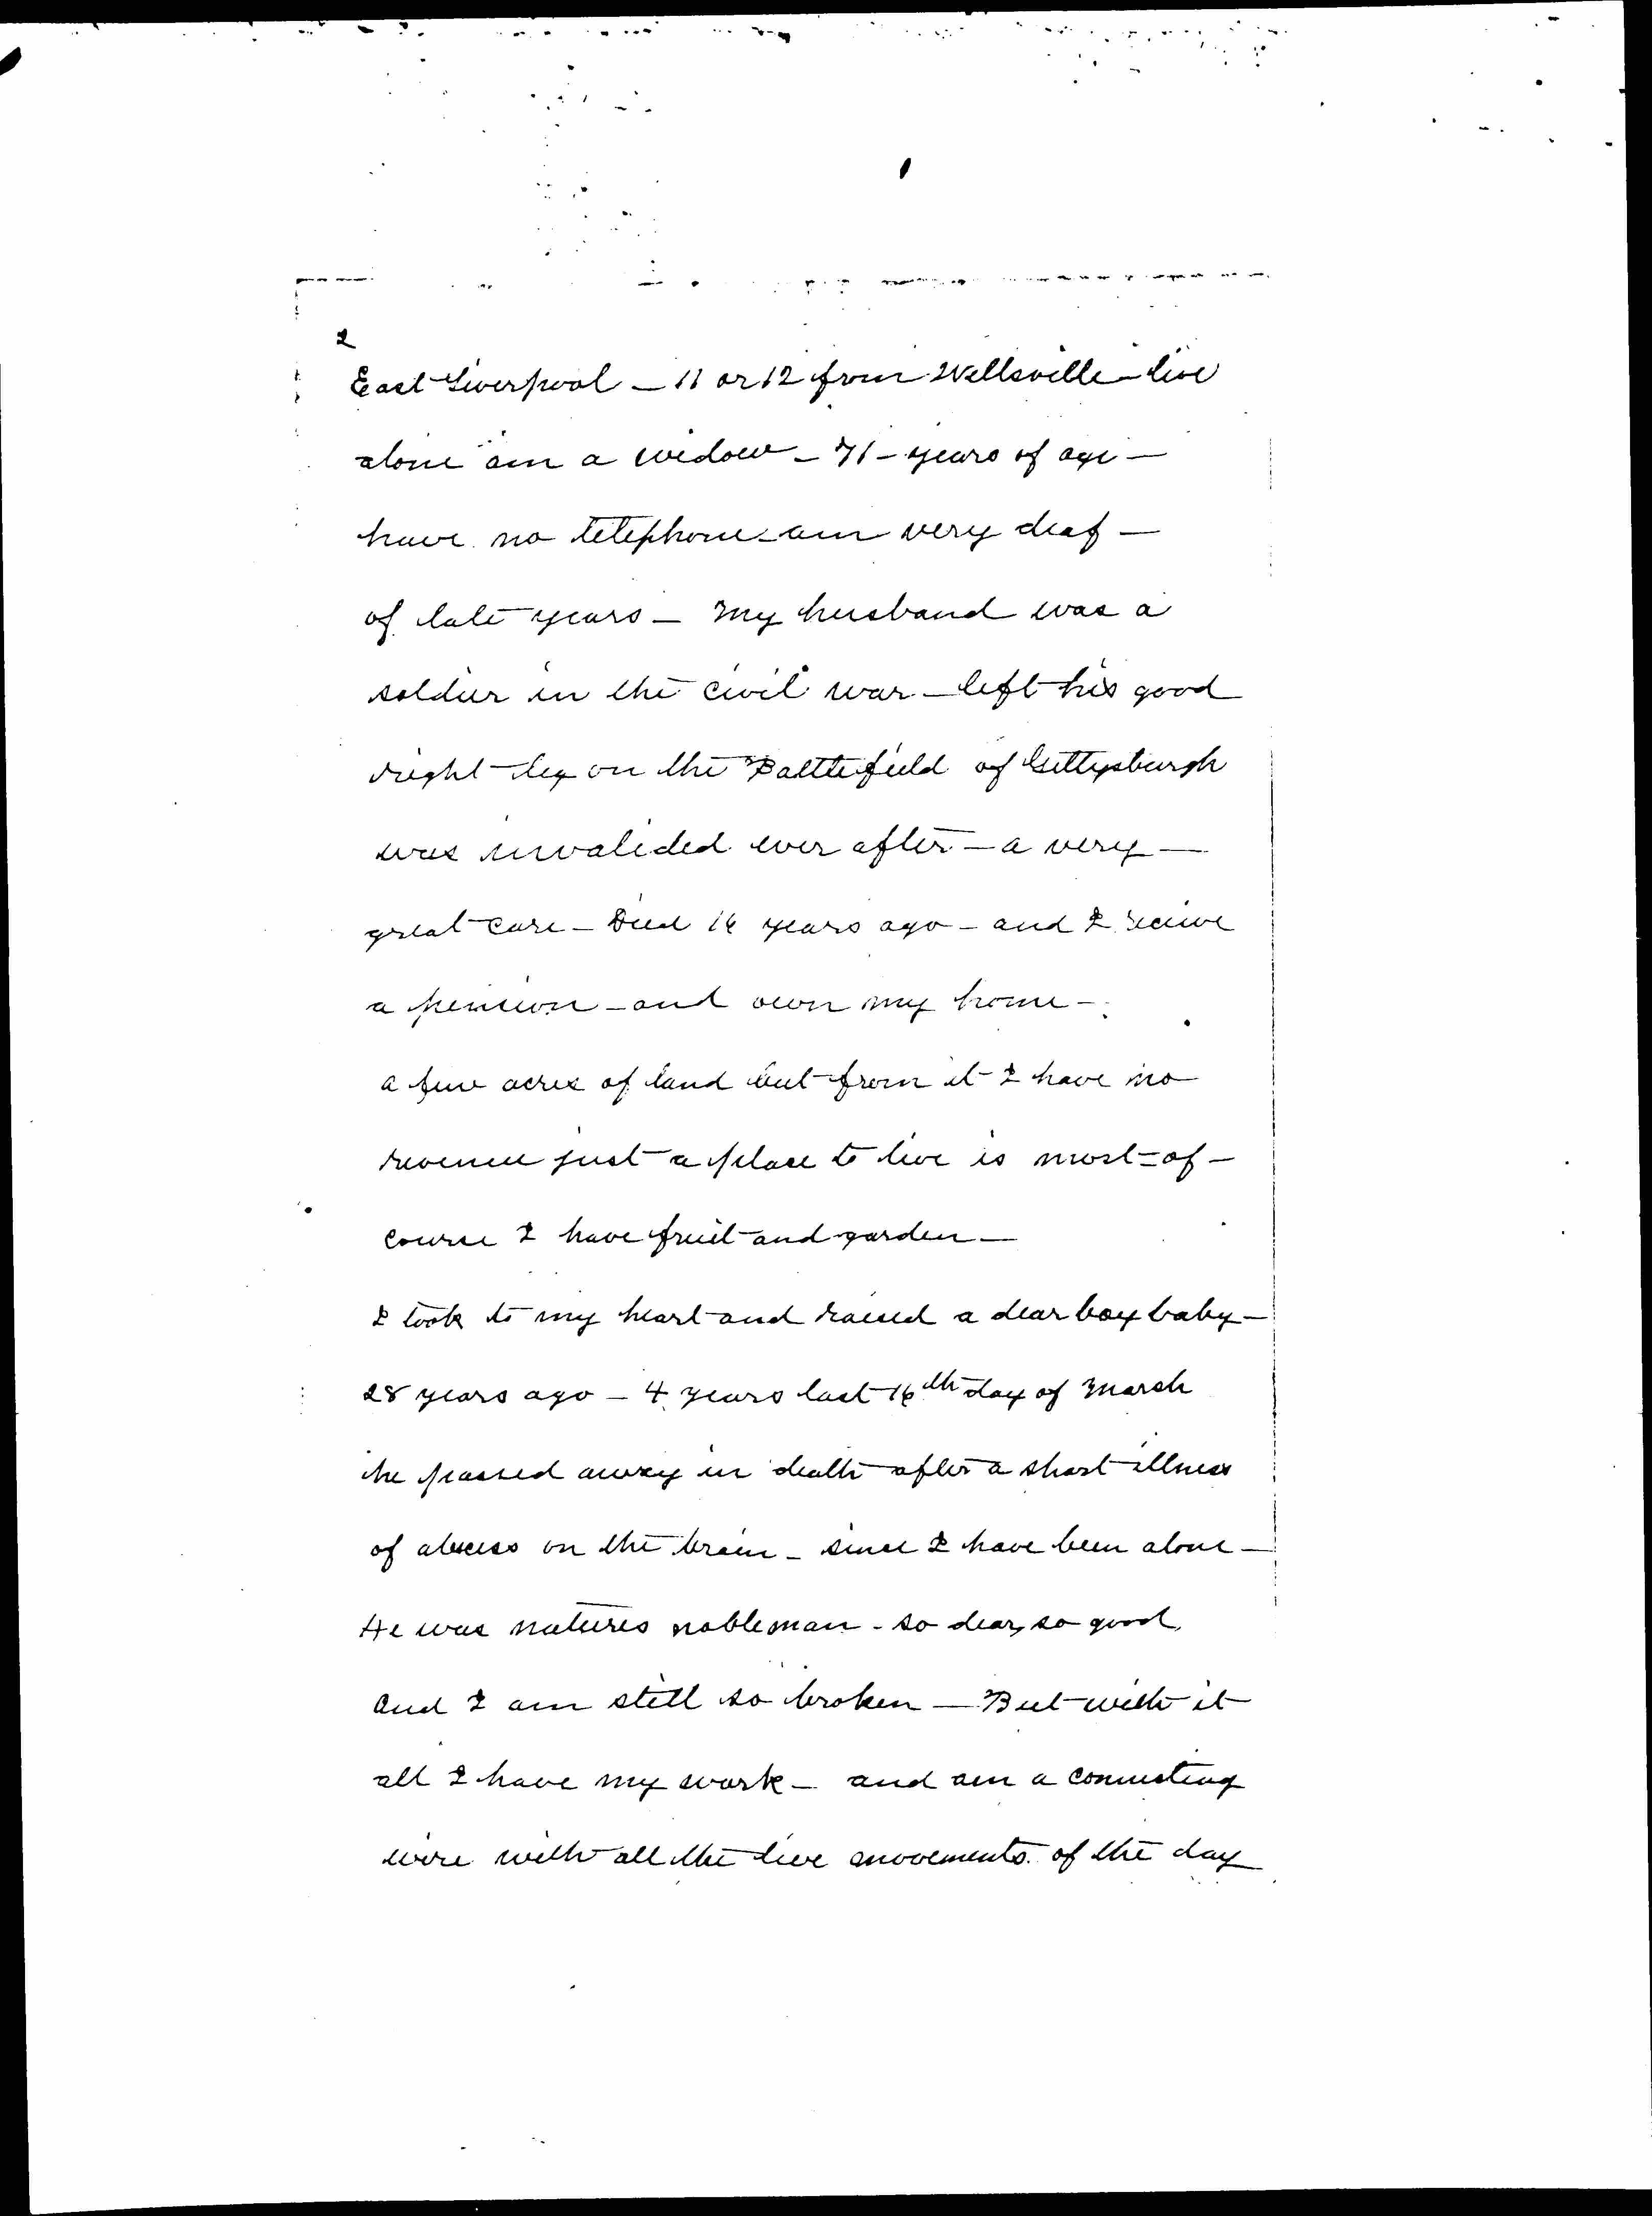 2
East Liverpool - 11 or 12 from Wellsville - live
alone am a widow - 71 - years of age -
have no telephone - am very deaf -
of late years - My husband was a
soldier in the civil war - left his good
right leg on the Battlefield of Gettysburgh
was invalided ever after - a very -
great care - Died 16 years ago - and I receive
a pension - and own my home -
a few acres of land but from it I have no
revenue just a place to live is most - of -
course I have fruit and garden -
I took to my heart and raised a dear boy baby -
28 years ago - 4 years last 16th day of March
he passed away in death after a short illness
of abscess on the brain - since I have been alone -
He was natures nobleman - so dear, so good,
and I am still so broken - But with it
all I have my work - and am a connecting
wire with all the live movements of the day